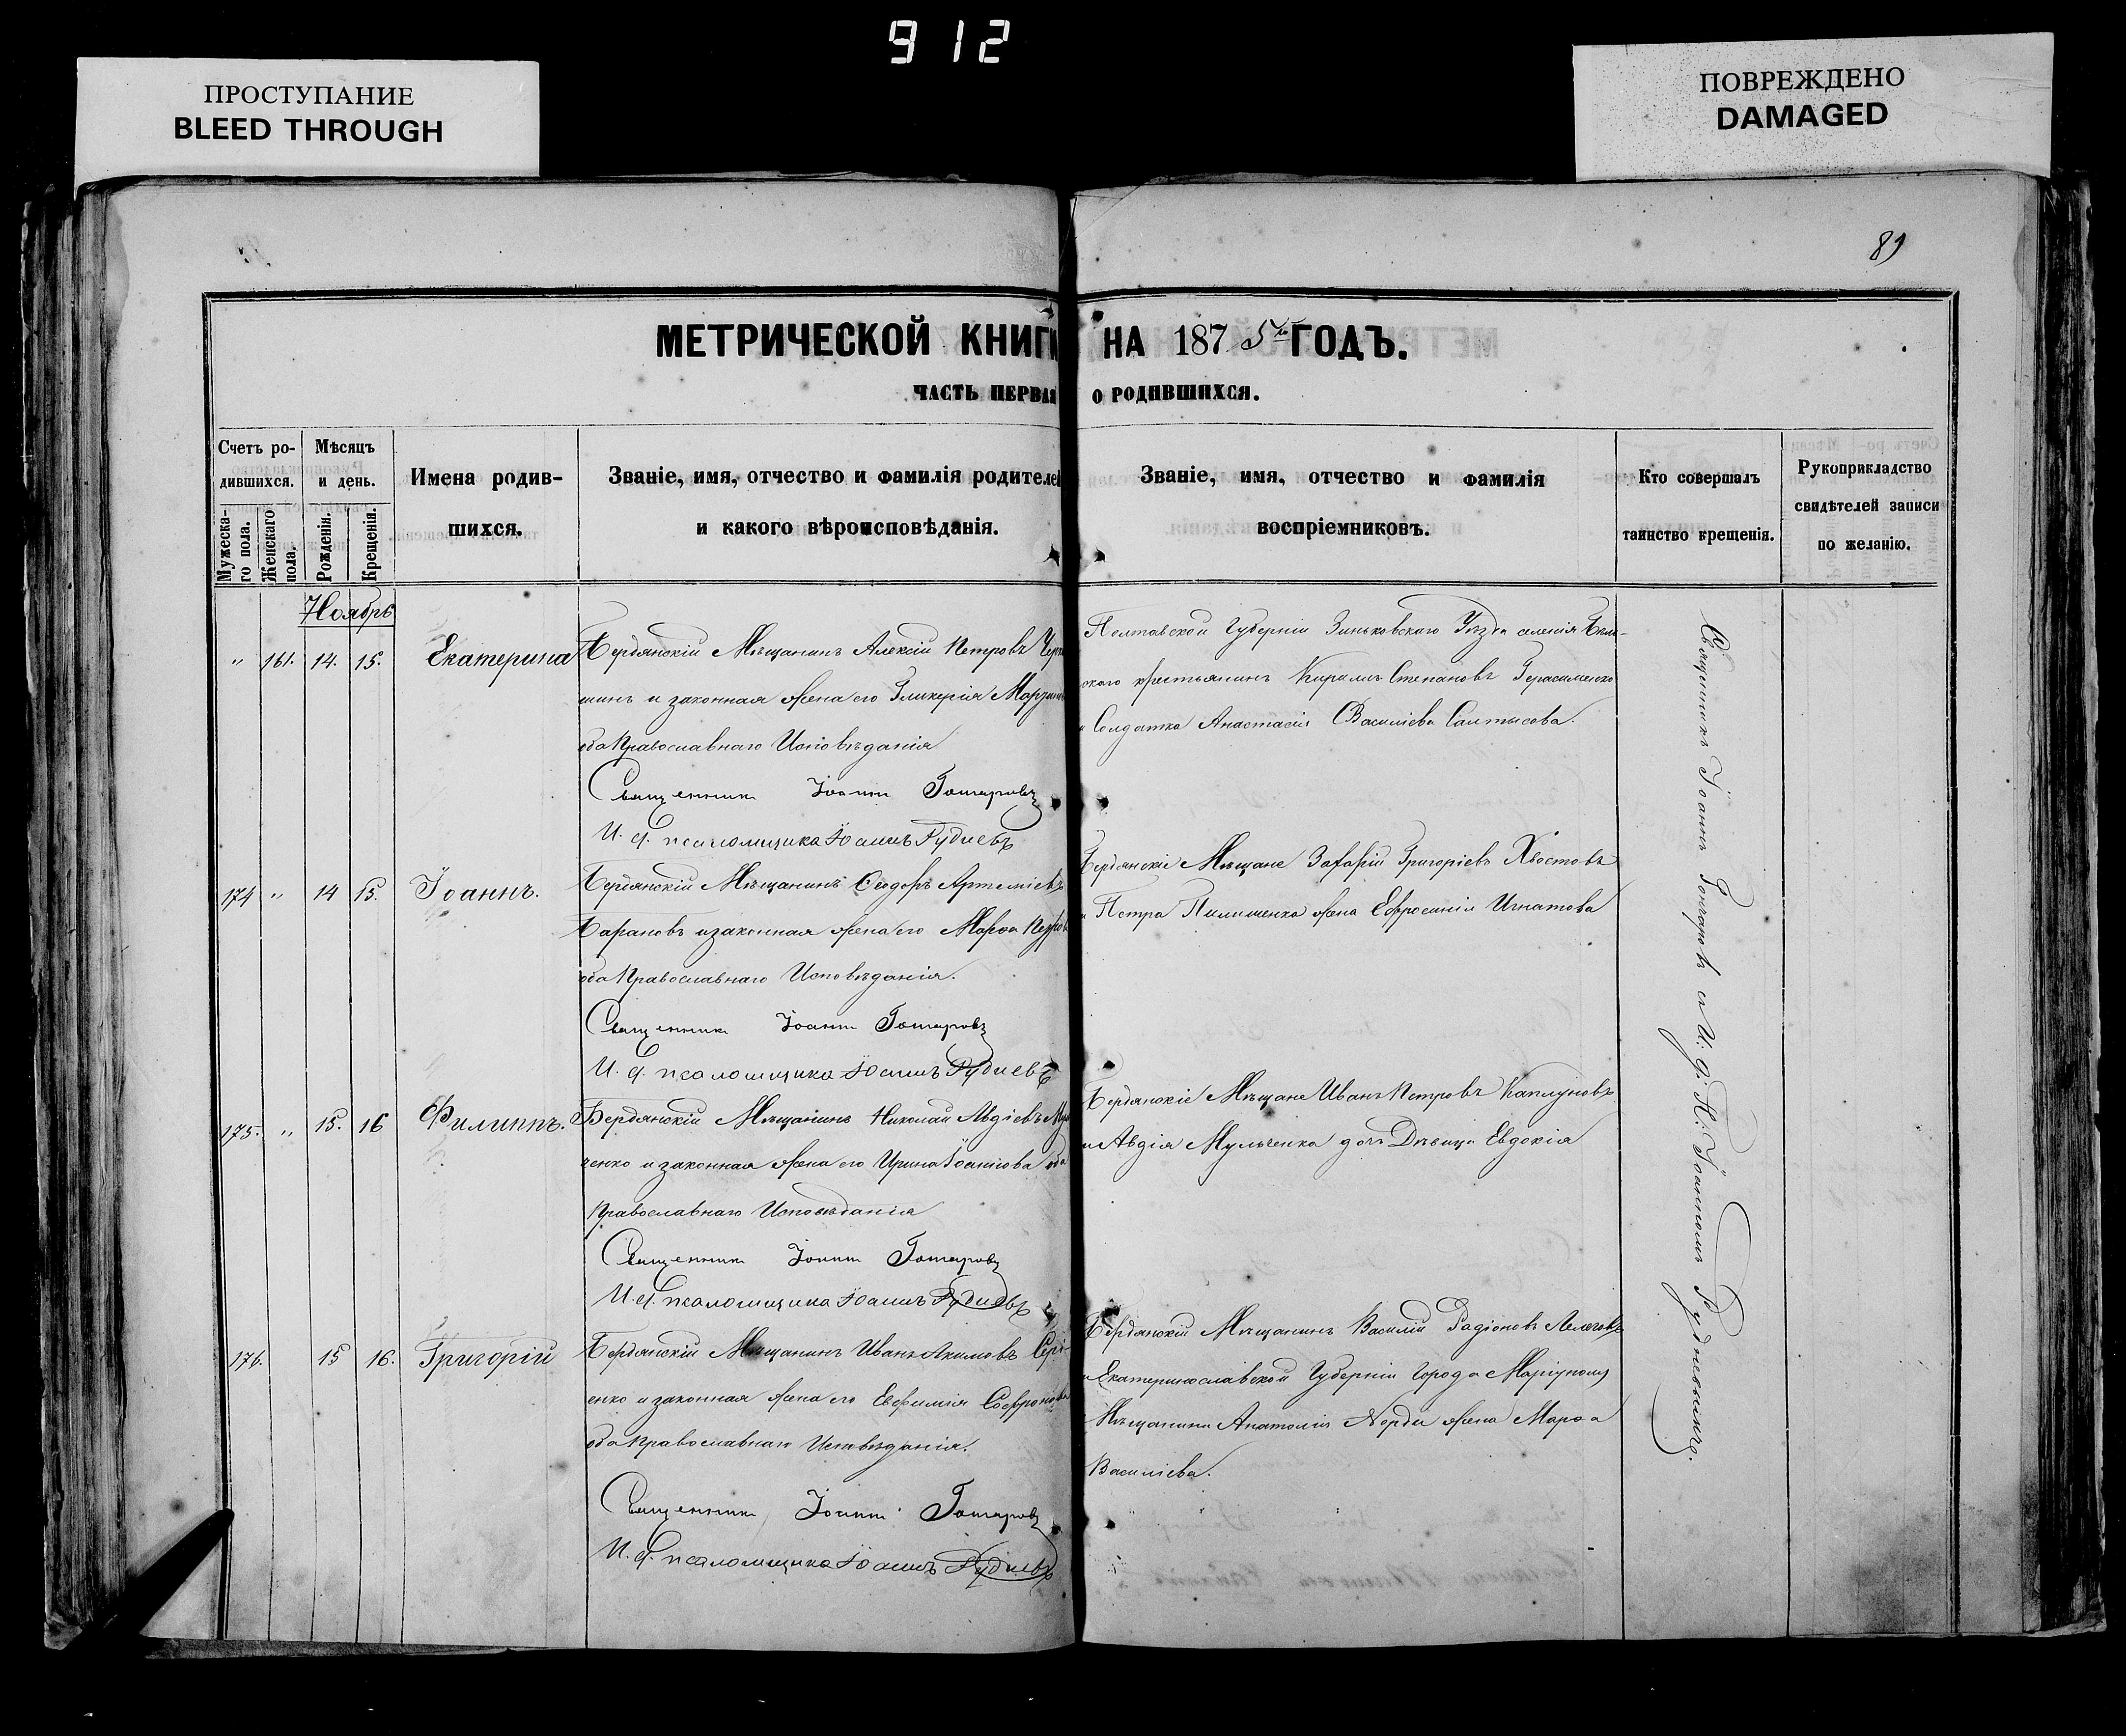 912
ПРОСТУПАНИЕ
BLEED THROUGH
ПОВРЕЖДЕНО
DAMAGED
89
МЕТРИЧЕСКОЙ КНИГИ НА 1875 ГОДЪ.
ЧАСТЬ ПЕРВАЯ О РОДИВШИХСЯ.
Счетъ ро-
дившихся.
Мужеска-
го пола.
Женскаго
пола.
Мѣсяцъ
и день.
Рожденія.
Крещенія.
Имена родив-
шихся.
Званіе, имя, отчество и фамилія родителей
и какого вѣроисповѣданія.
Званіе, имя, отчество и фамилія
воспріемниковъ.
Кто совершалъ
таинство крещенія.
Рукоприкладство
свидѣтелей записи
по желанію.
Ноябрь
" 161. 14. 15. Екатерина
Бердянскій Мѣщанинъ Алексій Петровъ
шинъ и законная жена его Гликерія
оба Православнаго Исповѣданія
Священникъ Іоаннъ Гончаровъ
И. д. псаломщика Іоаннъ Рудневъ
Полтавской Губерніи Зиньковскаго Уѣзда селенія
ского крестьянинъ Кирилъ Степановъ Герасименко
и Солдатка Анастасія Василіева Салтысова.
174 " 14 15. Іоаннъ.
Бердянскій Мѣщанинъ Ѳеодоръ Артеміевъ
Барановъ и законная жена его Марѳа
оба Православнаго Исповѣданія.
Священникъ Іоаннъ Гончаровъ
И. д. псаломщика Іоаннъ Рудневъ
Бердянскіе Мѣщане Захарій Григоріевъ Хвостовъ
и Петра Пилипенка жена Евфросинія Игнатова
175. " 15. 16 Филиппъ.
Бердянскій Мѣщанинъ Николай Авдіевъ
ченко и законная жена его Ирина Іоаннова оба
Православнаго Исповѣданія
Священникъ Іоаннъ Гончаровъ
И. д. псаломщика Іоаннъ Рудневъ
Бердянскіе Мѣщане Иванъ Петровъ Каплуновъ
и Авдія Мульченка дочь Дѣвица Евдокія
176. 15 16. Григорій
Бердянскій Мѣщанинъ Иванъ Акимовъ Серг
енко и законная жена его Евфимія Софронова
оба Православнаго Исповѣданія.
Священникъ Іоаннъ Гончаровъ
И. д. псаломщика Іоаннъ Рудневъ
Бердянскій Мѣщанинъ Василій Радіоновъ
и Екатеринославской Губерніи Города Маріуполя
Мѣщанина Анатолія жена Марѳа
Василіева.
Священникъ Іоаннъ Гончаровъ съ И: д: П: Іоанномъ Рудневымъ.